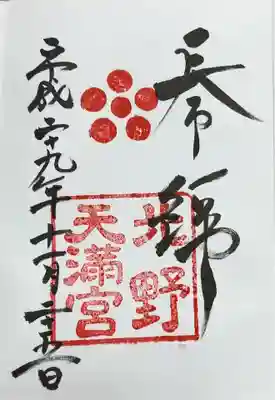 錦
北野
天満宮
平成二十九年十一月二十五日